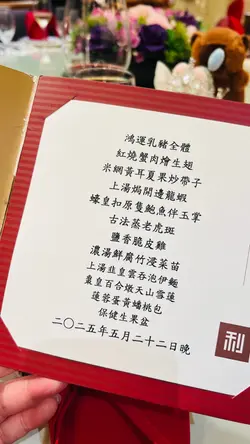 鴻運乳豬全體
紅燒蟹肉燴生翅
米網黃耳夏果炒帶子
上湯焗開邊龍蝦
蠔皇扣原隻鮑魚伴玉掌
古法蒸老虎斑
鹽香脆皮雞
濃湯鮮腐竹浸菜苗
上湯韭皇雲吞泡伊麵
棗皇百合燉天山雪蓮
蓮蓉蛋黃蟠桃包
保健生果盆
二〇二五年五月二十二日晚
利